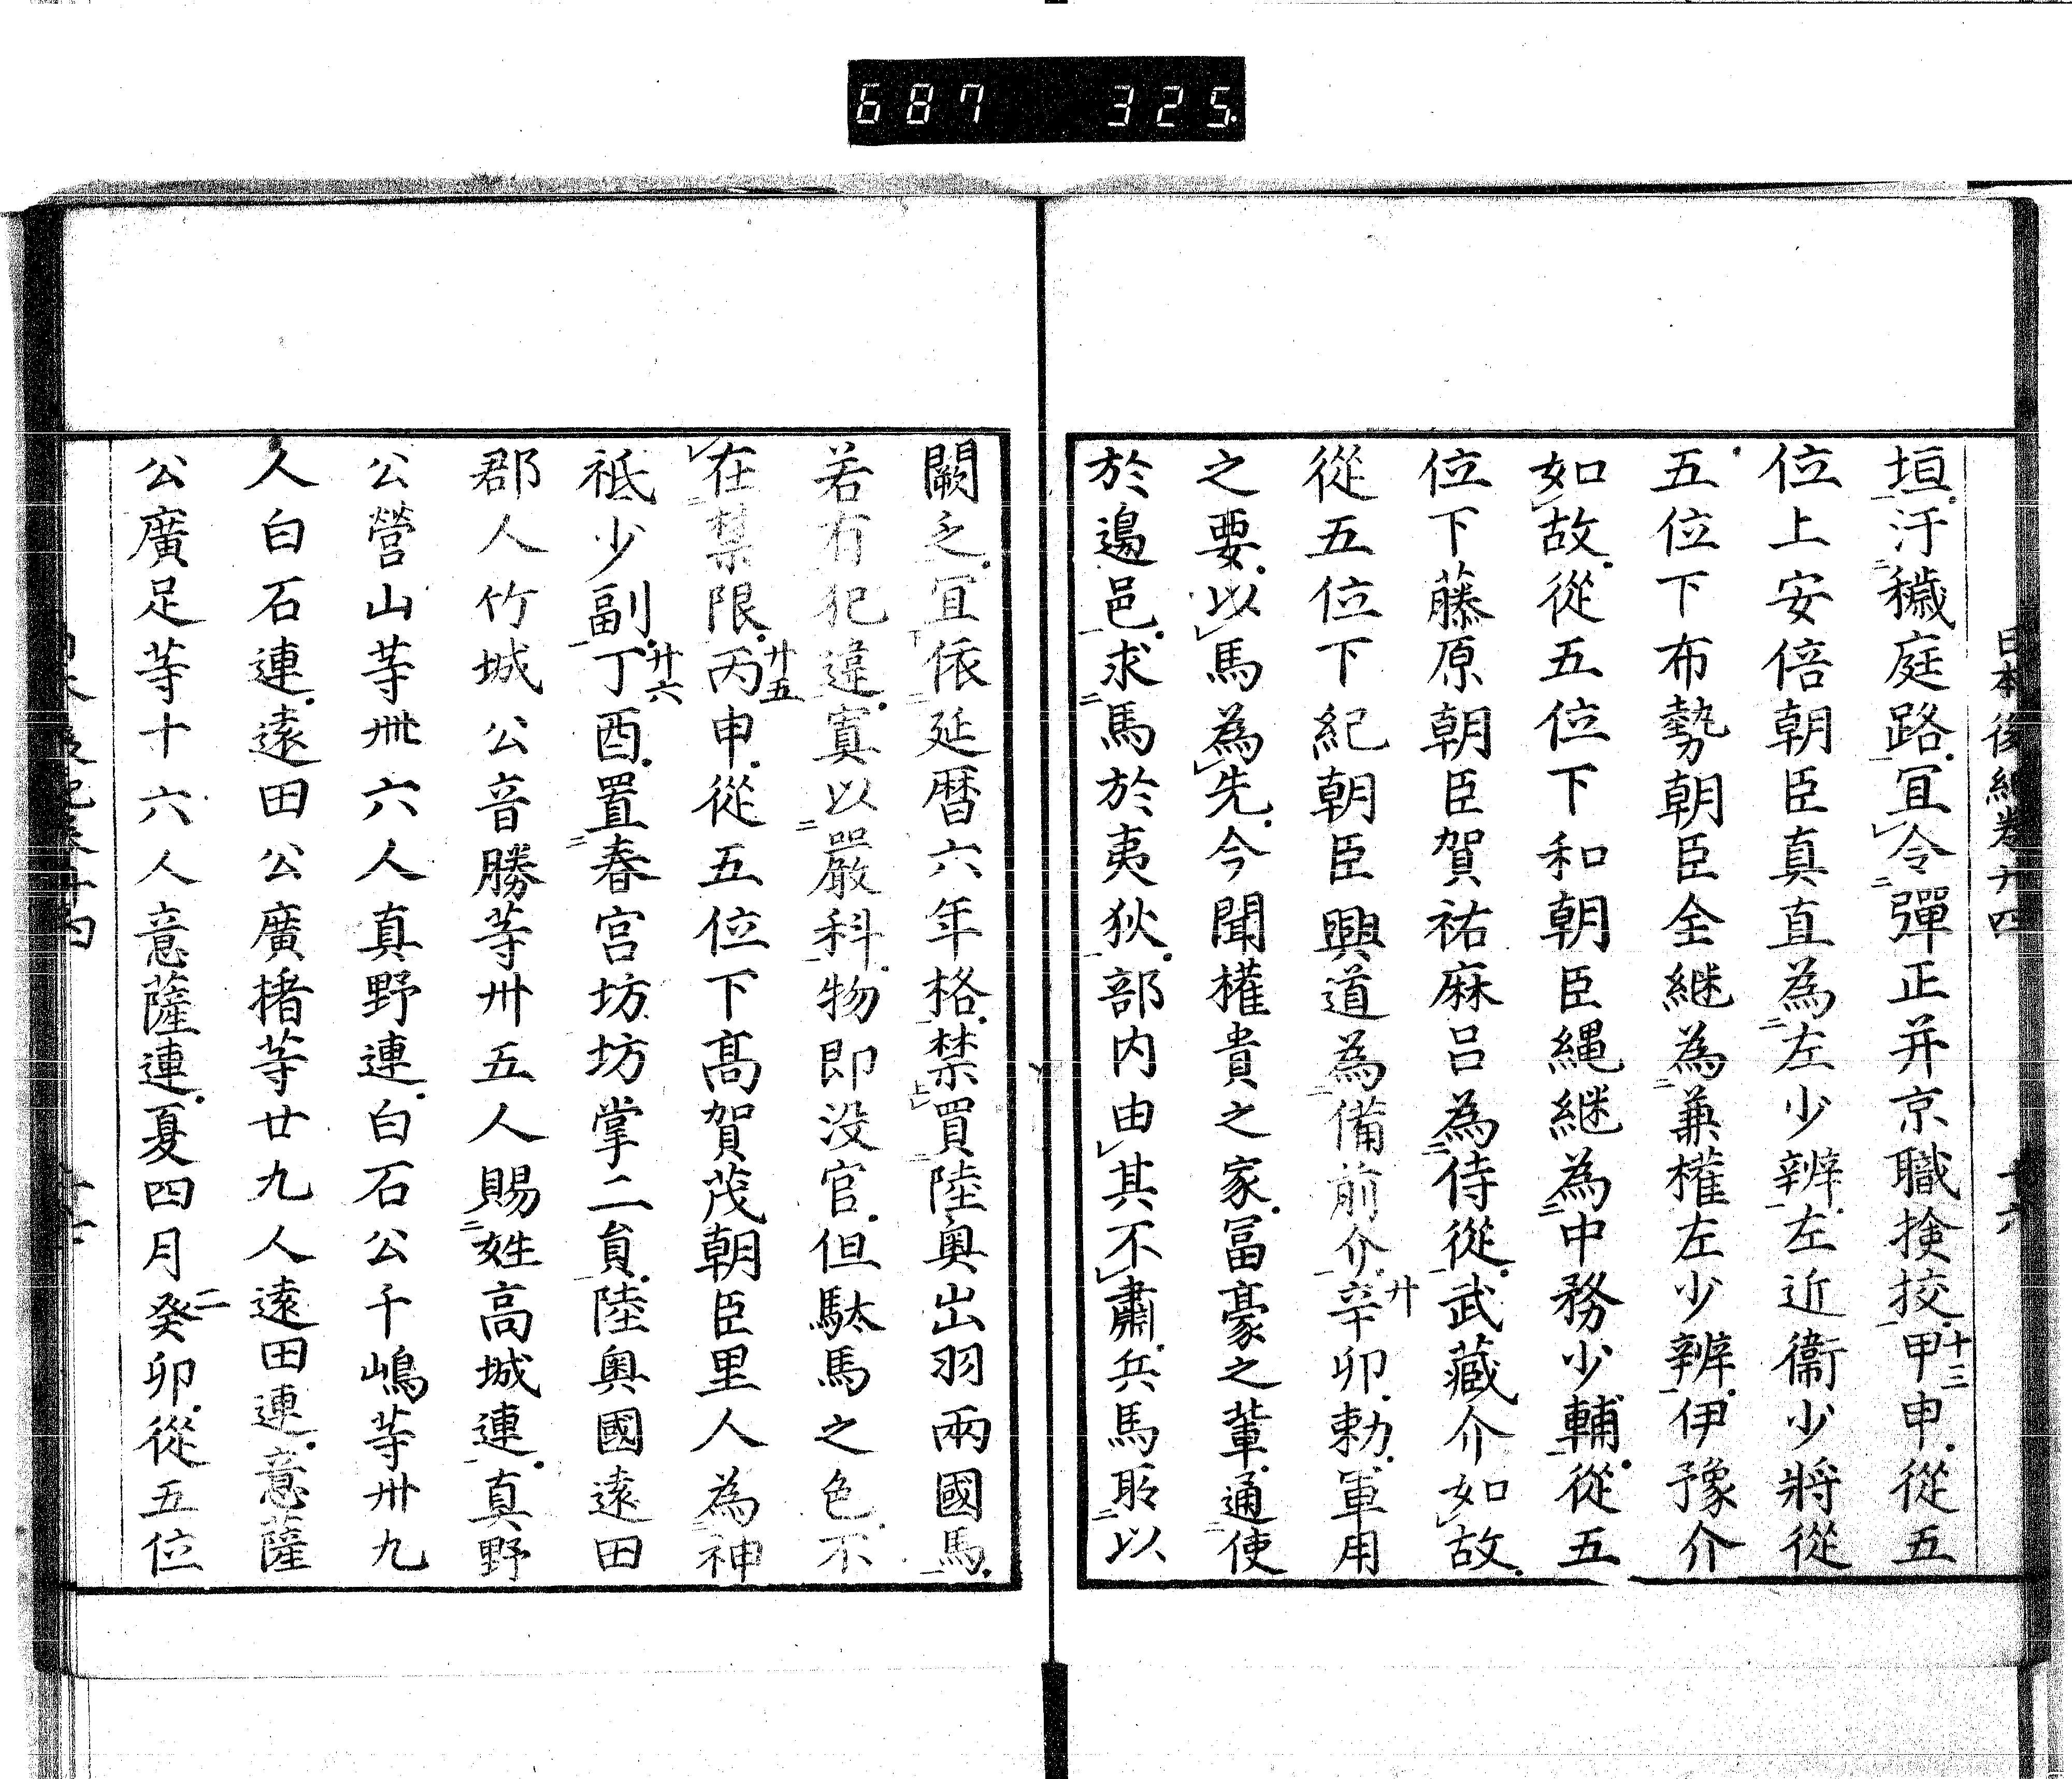 687 325
日本後紀卷廿四 十六
垣汙穢庭路冝令彈正并京職挍挍甲申十三從五
位上安倍朝臣真直為左少辨左近衞少將從
五位下布勢朝臣全継為兼權左少辨伊豫介
如故從五位下和朝臣縄継為中務少輔從五
位下藤原朝臣賀祐麻呂為侍從武藏介如故
從五位下紀朝臣興道為備前介辛卯廿勅軍用
之要以馬為先今聞權貴之家冨豪之輩通使
於邊邑求馬於夷狄部内由其不肅兵馬所以
闕之冝依延暦六年格禁買陸奥出羽兩國馬
若有犯違寘以嚴科物即没官但駄馬之色不
在禁限丙申廿五從五位下髙賀茂朝臣里人為神
祇少副丁酉廿六置春宮坊坊掌二貟陸奥國遠田
郡人竹城公音勝等卅五人賜姓高城連真野
公營山等卌六人真野連白石公千嶋等卅九
人白石連遠田公廣楮等廿九人遠田連意薩
公廣足等十六人意薩連夏四月癸卯二從五位